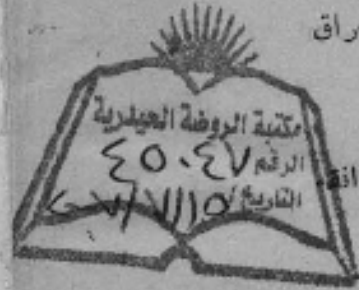 راق
مكتبة الروضة الحيدرية
الرقم ٤٥٠٤٧
التاريخ